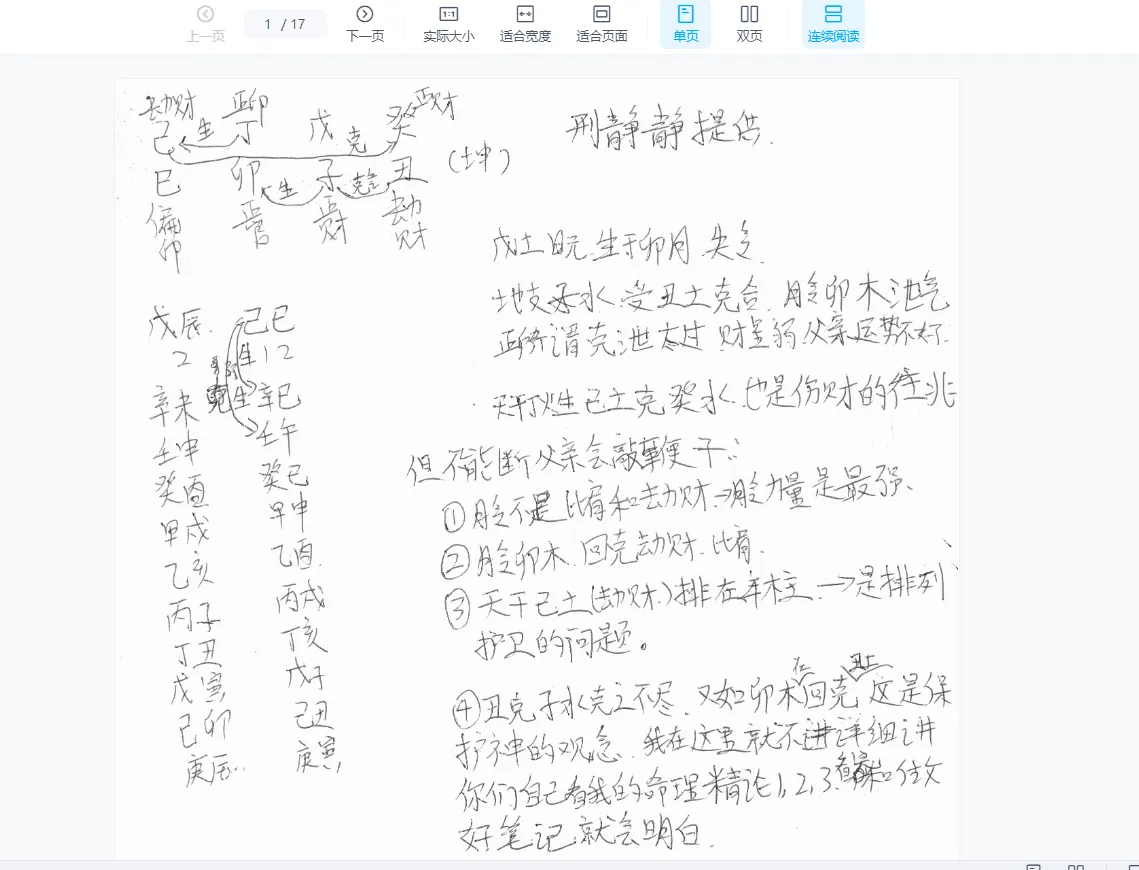 上一页
1 / 17
下一页
实际大小
适合宽度
适合页面
单页
双页
连续阅读
劫财 正印 正财
己 生 丁 戊 克 癸
巳 卯 生 子 克合 丑 (坤)
偏印 正官 正财 劫财
刑静静提供.
戊土日元.生于卯月.失令.
地支子水.受丑土克合.月令卯木泄气
正所谓克泄太过 财星弱.父亲运势不好.
天干丁火生己土克癸水.也是伤财的往兆
但不能断父亲会敲鞭子:
①月令不是比肩和劫财→月令力量是最强、
②月令卯木.回克劫财.比肩.
③天干己土(劫财.)排在年柱.→是排列
护卫的问题。
④丑克子水克之不尽.又如卯木在回克丑土这是保
护神的观念.我在这里就不讲详细讲
你们自己看我的命理精论1,2,3.和做
好笔记.就会明白.
戊辰. 己巳
2 生 1 2
辛未 生 辛巳
壬申 壬午
癸酉 癸巳
甲戌 甲申
乙亥 乙酉.
丙子 丙戌
丁丑 丁亥
戊寅 戊子
己卯 己丑
庚辰.. 庚寅,